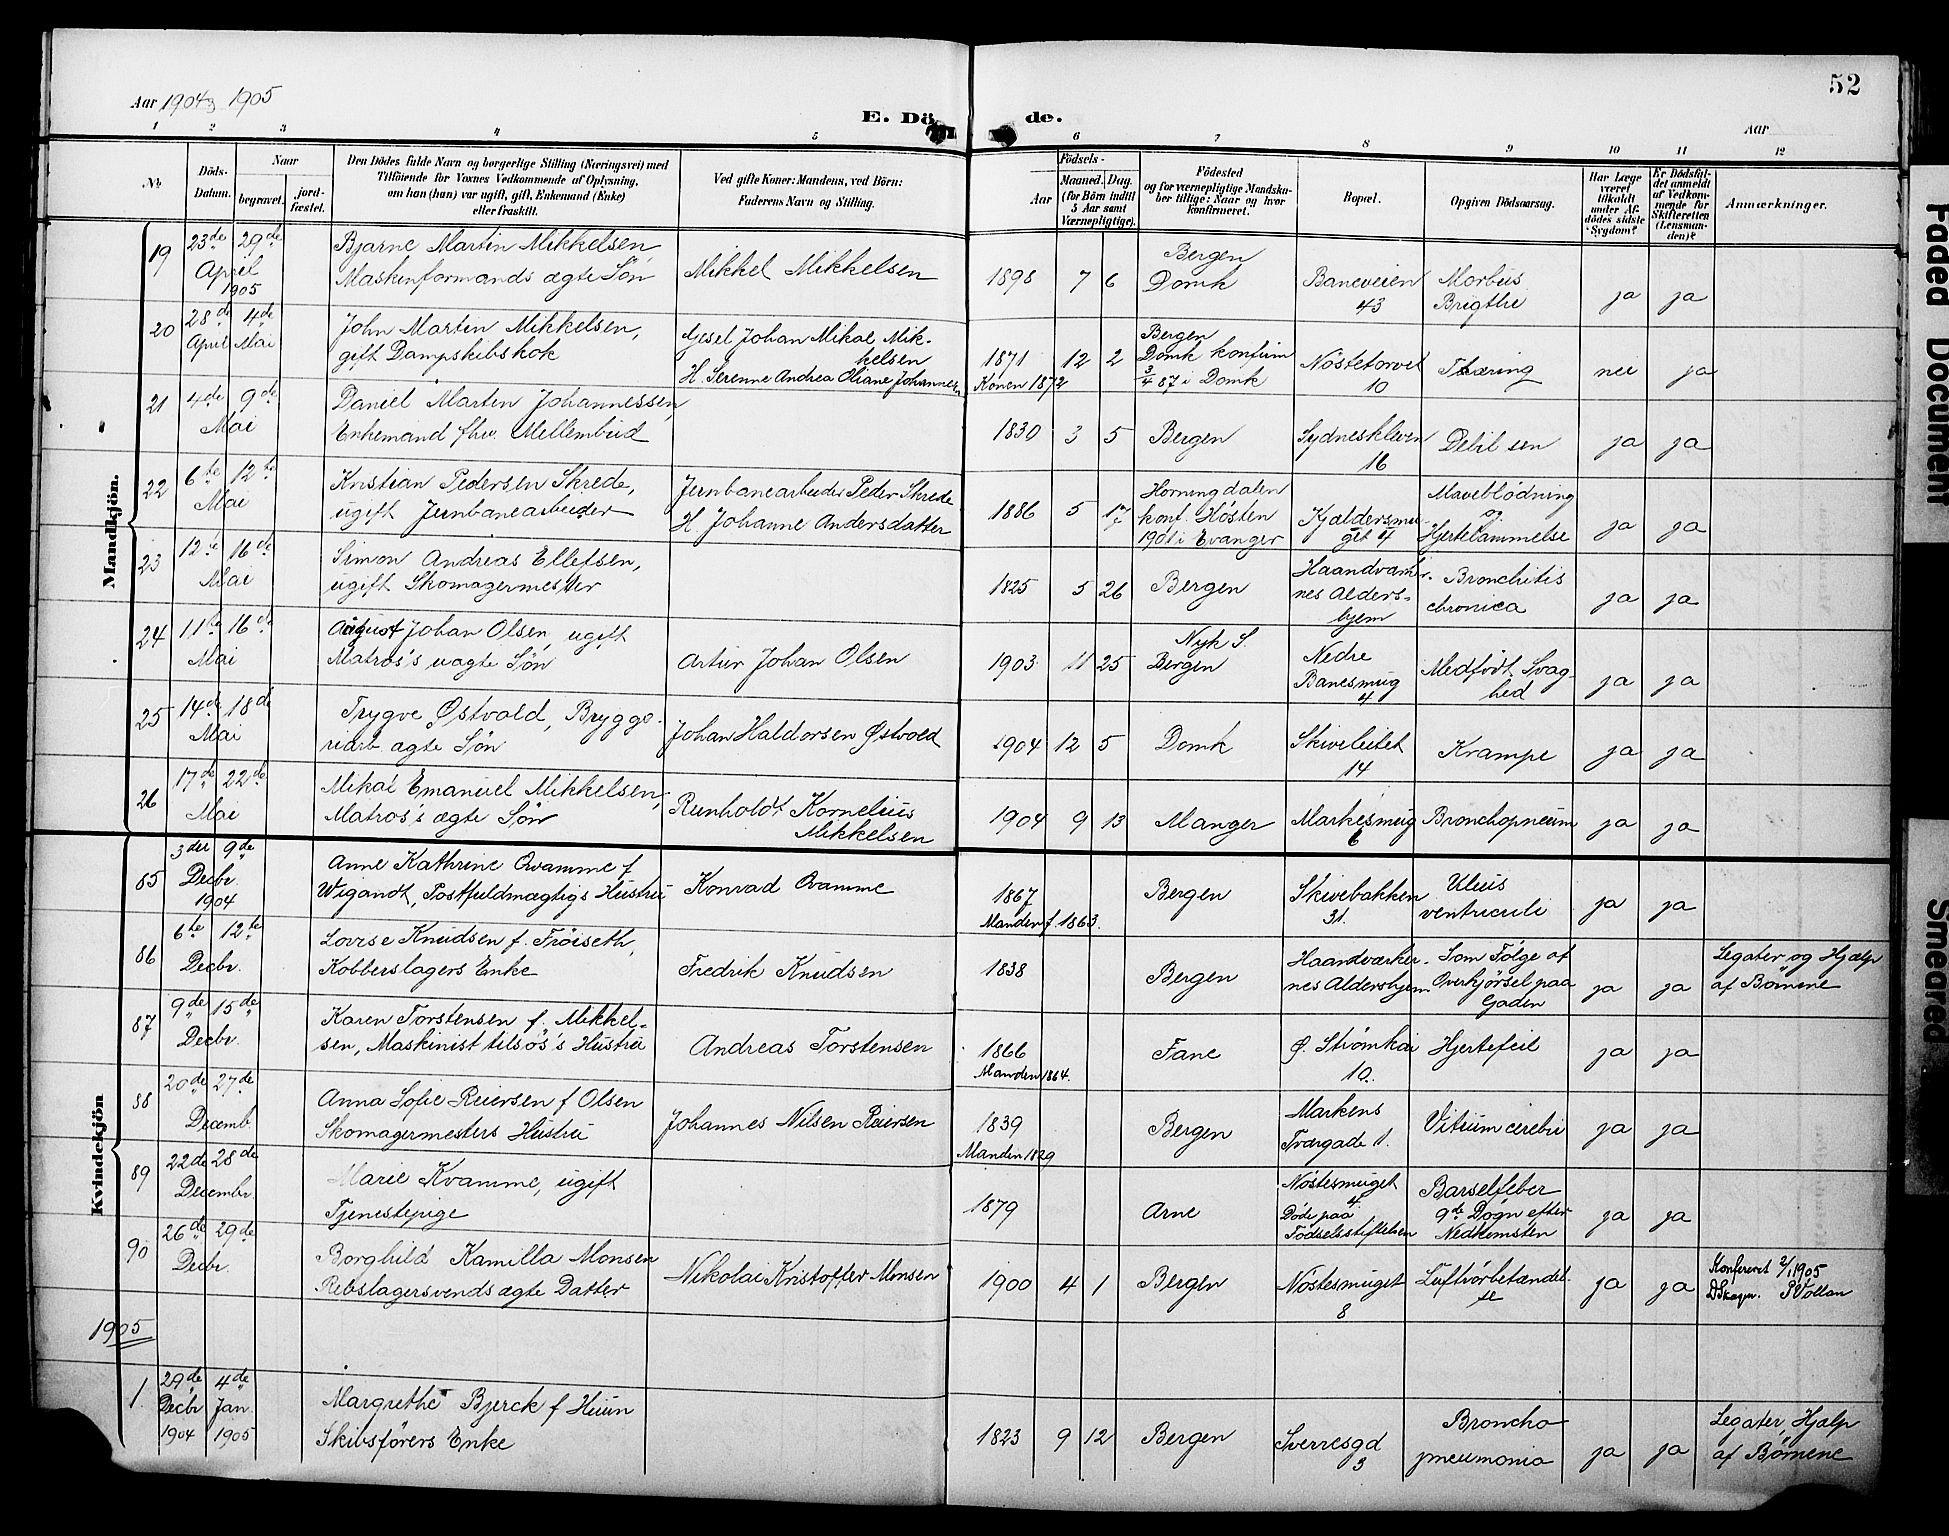 52
Aar 1904 og 1905
E. Dö de.
Aar
1 2 3 4 5 6 7 8 9 10 11 12
№
Döds-Datum.
Naar
begravet.
jord-fæstet.
Den Dödes fulde Navn og borgerlige Stilling (Næringsvei) med
Tilföiende for Voxnes Vedkommende af Oplysning,
om han (hun) var ugift, gift, Enkemand (Enke)
eller fraskilt.
Ved gifte Koner: Mandens, ved Börn:
Faderens Navn og Stilling.
Födsels-
Aar
Maaned. Dag.
(for Börn indtil
5 Aar samt
Værnepligtige).
Födested
og for værnepligtige Mandska-
ber tillige: Naar og hvor
konfirmeret.
Bopæl.
Opgiven Dödsaarsag.
Har Læge
været
tilkaldt
under Af-
dödes sidste
Sygdom?
Er Dödsfal-
det anmeldt
af Vedkom-
mende for
Skifteretten
(Lensman-
den)?
Anmærkninger.
Mandkjön.
19 23de April 1905 29de Bjarne Martin Mikkelsen, Maskinformands ægte Søn Mikkel Mikkelsen 1898 7 6 Bergen Domk Baneveien 43 Morbus Brigthii ja ja
20 28de April 4de Mai John Martin Mikkelsen, gift Dampskibskok Gesel Johan Mikal Mikkelsen H. Serenne Andrea Oliane Johannesen 1871 Konen 1872 12 2 Bergen Domk konfirm 3/4 87 i Domk Nøstetorvet 10 Tæring nei ja
21 4de 9de Mai Daniel Martin Johannessen, Enkemand fhv. Mellembud 1830 3 5 Bergen Sydneskleven 16 Debil sen ja ja
22 6te 12te Mai Kristian Pedersen Skrede, ugift Jernbanearbeider Jernbanearbeider Peder Skrede H. Johanne Andersdatter 1886 5 17 Horningdalen konf. Høsten 1901 i Evanger Kjældersmuget 4 Maveblødning og Hjertelammelse ja ja
23 12te 16de Mai Simon Andreas Ellefsen, ugift Skomagermester 1825 5 26 Bergen Haandværkernes Aldershjem Bronchitis chronica ja ja
24 11te 16de Mai August Johan Olsen, ugift Matros's uægte Søn Artur Johan Olsen 1903 11 25 Nyk S. Bergen Nedre Banesmug 4 Medfødt Svaghed ja ja
25 14de 18de Mai Trygve Østvold, Bryggeriarb ægte Søn Johan Haldorsen Østvold 1904 12 5 Domk Skivebitet 14 Krampe ja ja
26 17de 22de Mai Mikal Emanuel Mikkelsen, Matros's ægte Søn Reinholdt Kornelius Mikkelsen 1904 9 13 Manger Markesmug 6 Bronchopneum ja ja
Kvindekjön
85 3die Decbr. 1904 9de Anne Kathrine Qvamme f Wigandt, Postfuldmægtigs Hustru Konrad Qvamme 1867 Manden f. 1863. Bergen Skivebakken 31. Ulcus ventriculi ja ja
86 6te 12te Decbr. Lovise Knudsen f. Frøiseth, Kobberslagers Enke Fredrik Knudsen 1838 Bergen Haandværkernes Aldershjem Som Følge af Overkjørsel paa Gaden ja ja Legater og Hjælp af Børnene
87 9de 15de Decbr. Karen Torstensen f. Mikkelsen, Maskinist tilsøs's Hustru Andreas Torstensen 1866 Manden 1864. Fane Ø. Strømkai 10. Hjertefeil ja ja
88 20de 27de Decemb. Anna Sofie Reiersen f Olsen Skomagermesters Hustru Johannes Nilsen Reiersen 1839 Manden 1829 Bergen Markens Tværgade 1. Vitium cerebri ja ja
89 22de 28de Decembr. Marie Kvamme, ugift Tjenestepige 1879 Arne Nøstesmuget 4 Døde paa Fødselsstiftelsen Barselfeber 9de Døgn efter Nedkomsten ja ja
90 26de 29de Decbr. Borghild Kamilla Monsen Rebslagersvends ægte Datter Nikolai Kristoffer Monsen 1900 4 1 Bergen Nøstesmuget 8 Luftrørbetændelse ja ja Konfereret 2/1 1905
1905
1. 29de Decbr 1904 4de Jan. 1905 Margrethe Bjerck f Huun Skibsførers Enke 1823 9 12 Bergen Sverresgd 3 Bronchopneumonia ja ja Legater, Hjælp af Børnene
Faded Document
Smeared